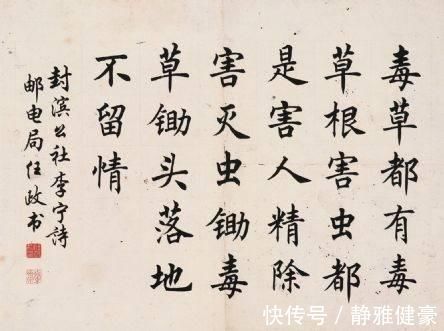 毒草都有毒
草根害虫都
是害人精除
害灭虫锄毒
草锄头落地
不留情
封滨公社李宁诗
邮电局任政书
快传号/静雅健豪